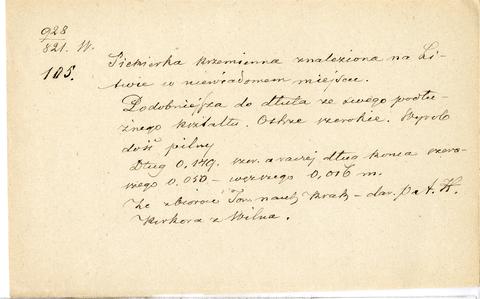 928
821. W.
105.
Siekierka krzemienna znaleziona na Li-
twie w niewiadomem miejscu.
Podobniejsza do dłuta ze swego podłu-
żnego kształtu. Ostrze szerokie. Wyrób
dość pilny
Dług 0,149. szer. a raczej dług końca szers-
zego 0.050 – węższego 0,016 m.
Ze zbiorów Tow. nauk. Krak – dar. Pa A. H.
Kirkora z Wilna.